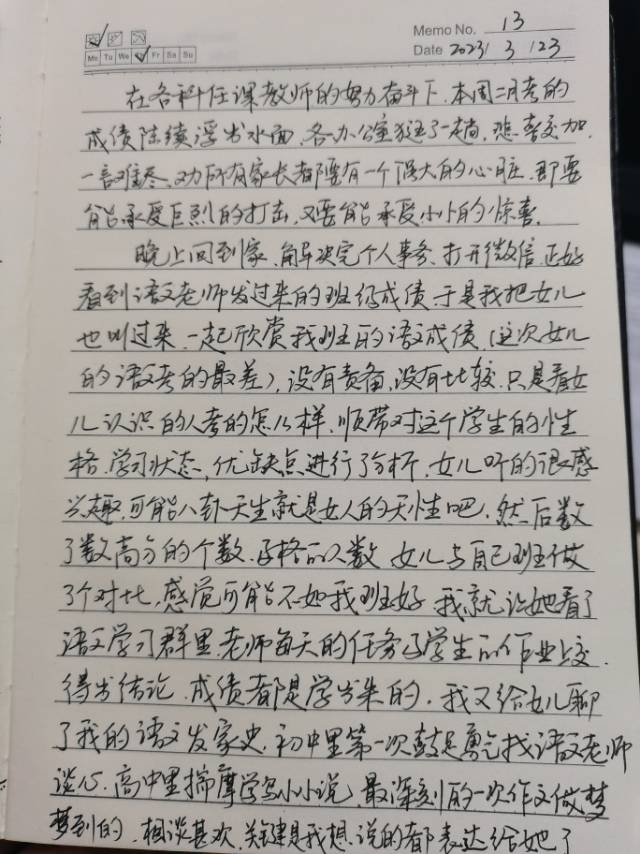 Memo No. 13
Mo Tu We Fr Sa Su
Date 2023 / 3 / 23
在各科任课教师的努力奋斗下,本周二月考的
成绩陆续浮出水面,各办公室狂了一趟,悲喜交加,
一言难尽,劝所有家长都要有一个强大的心脏,即要
能承受巨烈的打击,又要能承受小小的惊喜。
晚上回到家,解决完个人事务,打开微信,正好
看到语文老师发过来的班级成绩,于是我把女儿
也叫过来,一起欣赏我班的语文成绩(这次女儿
的语文考的最差),没有责备,没有比较,只是看女
儿认识的人考的怎么样,顺带对这个学生的性
格,学习状态,优缺点进行了分析,女儿听的很感
兴趣,可能八卦天生就是女人的天性吧,然后数
了数高分的个数,及格的人数,女儿与自己班做
了个对比,感觉可能不如我班好,我就让她看了
语文学习群里,老师每天的任务及学生的作业上交,
得出结论,成绩都是学出来的,我又给女儿聊
了我的语文发家史,初中里第一次鼓足勇气找语文老师
谈心,高中里揣摩学写小小说,最深刻的一次作文做梦
梦到的,相谈甚欢,关键是我想说的都表达给她了